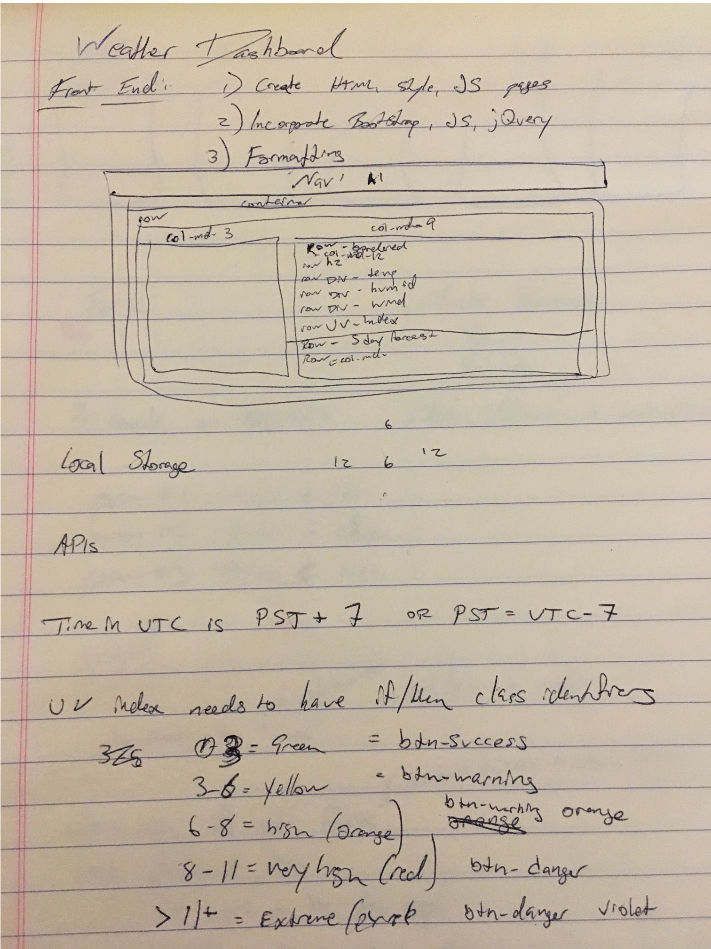 Weather Dashboard
Front End: 1) Create Html, style, JS pages
2) Incorporate Bootstrap, JS, jQuery
3) Formatting
Nav
container
row
col-md-3
col-md-9
Row - bordered
col-md-12
row h2
row DIV - temp
row DIV - humid
row DIV - wind
row UV - Index
Row - 5 day forecast
Row - col-md-
6
Local Storage 12 6 12
APIs
Time in UTC is PST + 7 OR PST = UTC-7
UV index needs to have if/then class identifiers
3 = Green = btn-success
3-6 = Yellow = btn-warning
6-8 = high (orange) btn-warning orange
8-11 = very high (red) btn-danger
>11+ = Extreme btn-danger violet